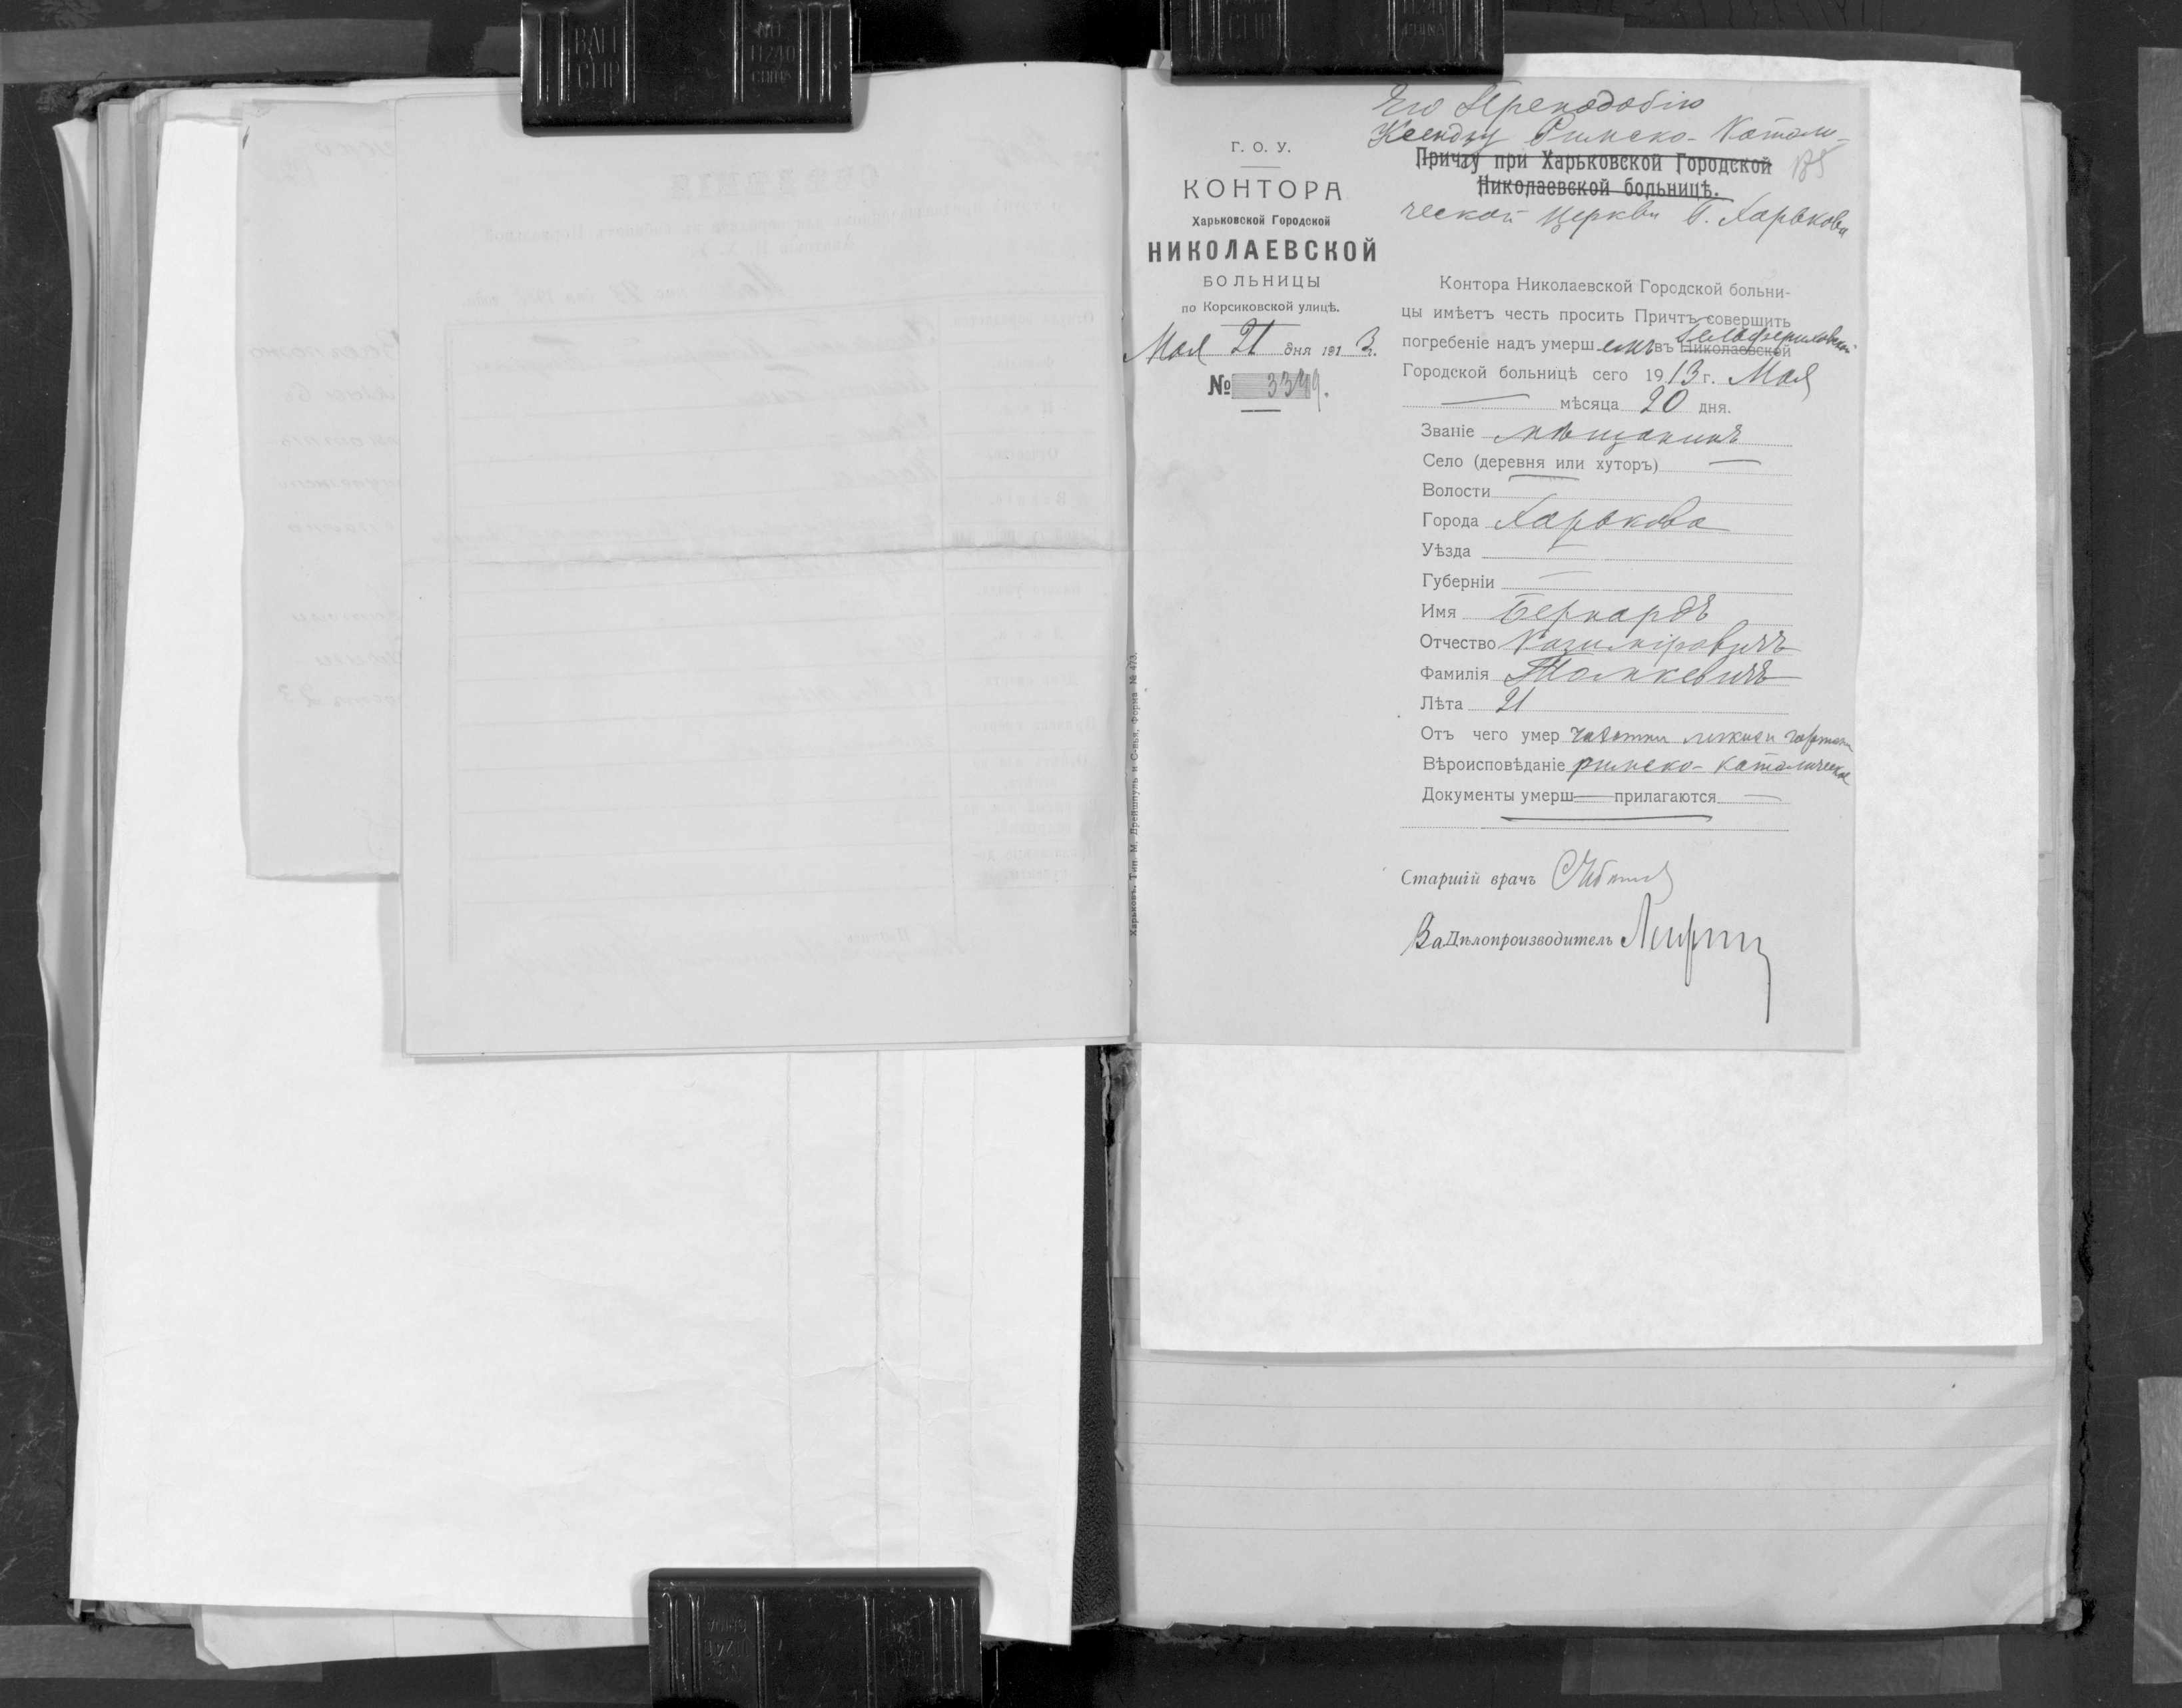 Его Преподобію
Ксендзу Римско-Католи-
Причту при Харьковской Городской
Николаевской больницѣ.
ческой церкви г. Харькова
Г. О. У.
КОНТОРА
Харьковской Городской
НИКОЛАЕВСКОЙ
БОЛЬНИЦЫ
по Корсиковской улицѣ.
Мая 21 дня 1913 г.
№ 3349.
Контора Николаевской Городской больни-
цы имѣетъ честь просить Причтъ совершить
погребеніе надъ умершимъ въ Николаевской
Городской больницѣ сего 1913 г. Мая
мѣсяца 20 дня.
Званіе мѣщанинъ
Село (деревня или хуторъ) —
Волости
Города Харькова
Уѣзда —
Губерніи —
Имя Бернардъ
Отчество Казиміровичъ
Фамилія Томкевичъ
Лѣта 21
Отъ чего умер чахотки легких и гортани
Вѣроисповѣданіе римско-католическое
Документы умерш— прилагаются —
Старшій врачъ
За Дѣлопроизводитель
Харьковъ. Тип. М. Дрейшпулъ и С-вья, Форма № 473.